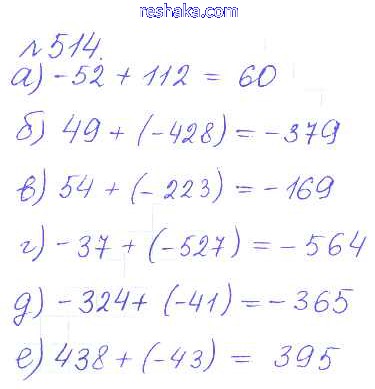 reshaka.com
№514.
а) -52 + 112 = 60
б) 49 + (-428) = -379
в) 54 + (-223) = -169
г) -37 + (-527) = -564
д) -324 + (-41) = -365
е) 438 + (-43) = 395